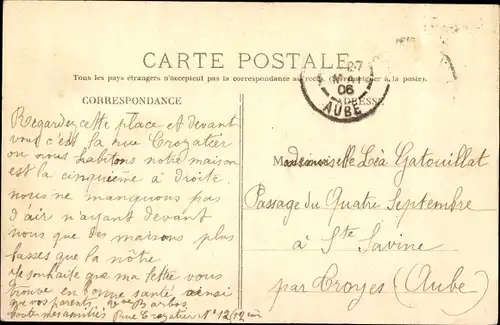 CARTE POSTALE
Tous les pays étrangers n'acceptent pas la correspondance au recto. (Se renseigner à la poste).
CORRESPONDANCE
ADRESSE
27
MAI
06
AUBE
Regardez cette place et devant
vous c'est la rue Crozatier
ou nous habitons notre maison
est la cinquième a droite.
nous ne manquons pas
d'air n'ayant devant
nous que des maisons plus
basses que la nôtre
Je souhaite que ma lettre vous
trouve en bonne santé ainsi
que vos parents. Barbos
toutes mes amitiés Rue Crozatier N° 12
Mademoiselle Léa Gatouillat
Passage du Quatre Septembre
à Ste Savine
par Troyes (Aube)